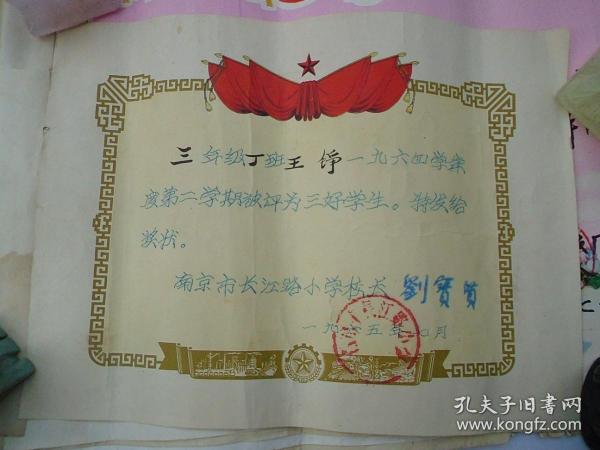 三年级丁班王铮一九六四学年
度第二学期被评为三好学生。特发给
奖状。
南京市长江路小学校长 劉寶
一九六五年七月
孔夫子旧书网
www.kongfz.com